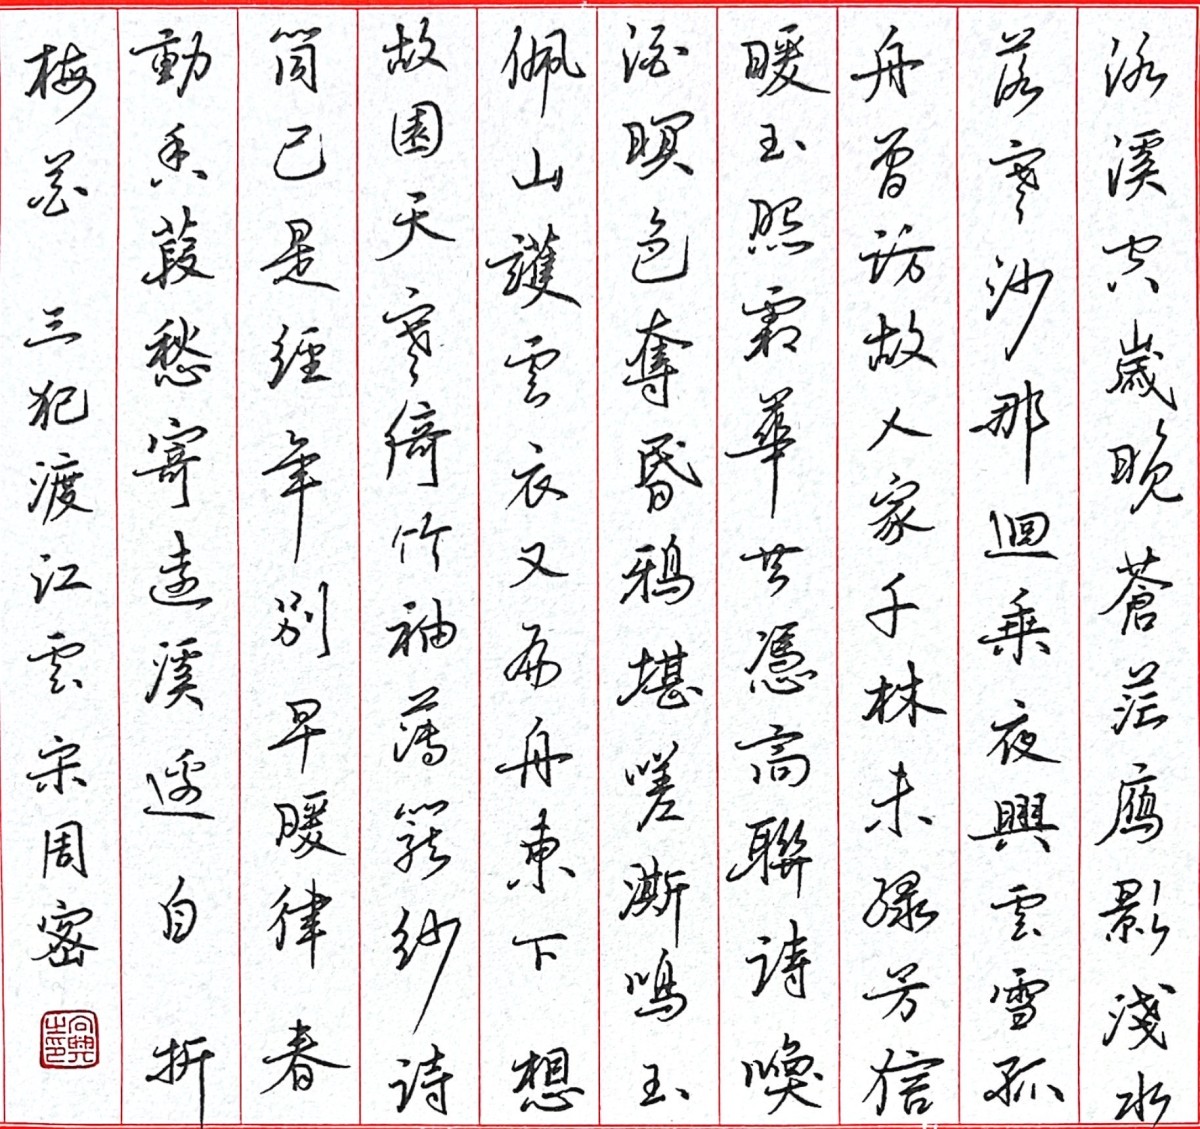 冰溪空歲晚蒼茫鴈影淺水
落寒沙那迴乘夜興雲雪孤
舟曾訪故人家千林未綠芳信
暖玉照霜華共憑高聯詩喚
酒暝色奪昏鴉堪嗟澌鳴玉
佩山護雲衣又扁舟東下想
故園天寒倚竹袖薄籠紗詩
筒已是經年別早暖律春
動香葭愁寄遠溪邊自折
梅花 三犯渡江雲 宋周密